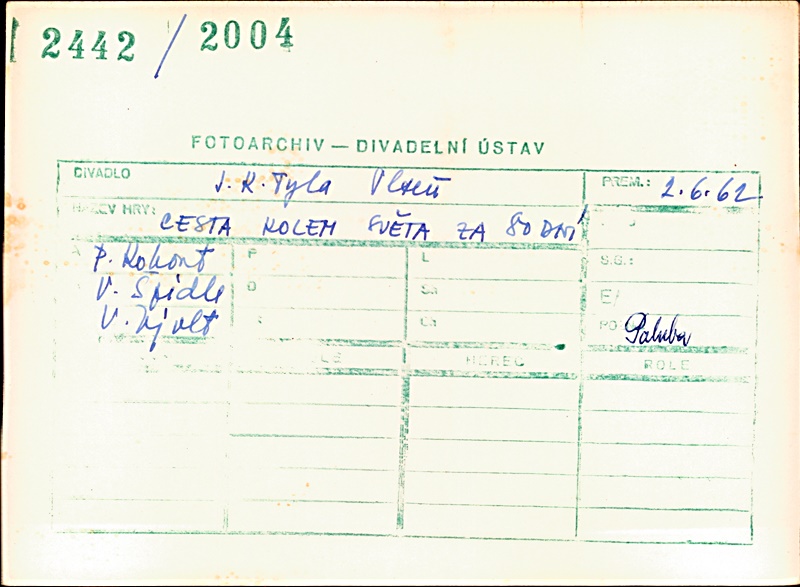 2442 / 2004
FOTOARCHIV — DIVADELNÍ ÚSTAV
DIVADLO J. K. Tyla Plzeň PREM.: 2.6.62
NÁZEV HRY: CESTA KOLEM SVĚTA ZA 80 DNÍ
P. Kohout P L S.S.:
V. Špidla D
V.
Paluba
HEREC ROLE